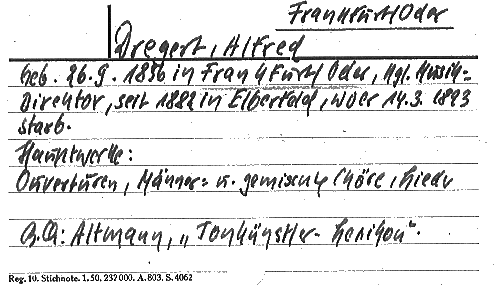 Frankfurt/Oder
Dregert, Alfred
Geb. 26.9.1836 in Frankfurt/Oder, Kgl. Musik-
direktor, seit 1882 in Elberfeld, wo er 14.3.1893
starb.
Hauptwerke:
Ouvertüren, Männer- u. gemischte Chöre, Lieder
Altmann, „Tonkünstler-Lexikon".
Reg. 10. Stichnote. 1. 50. 232000. A. 803. S. 4062